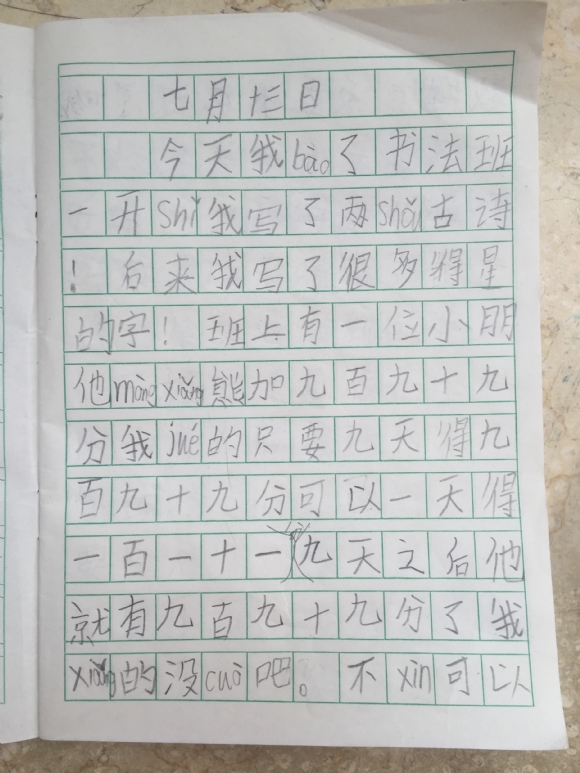 七月十三日
今天我bào了书法班
一开Shǐ我写了两Shǒu古诗
！后来我写了很多得星
的字！班上有一位小朋
他mèngxiǎng能加九百九十九
分我jué的只要九天得九
百九十九分可以一天得
一百一十一九天之后他
就有九百九十九分了我
xiǎng的没cuò吧。不xìn可以